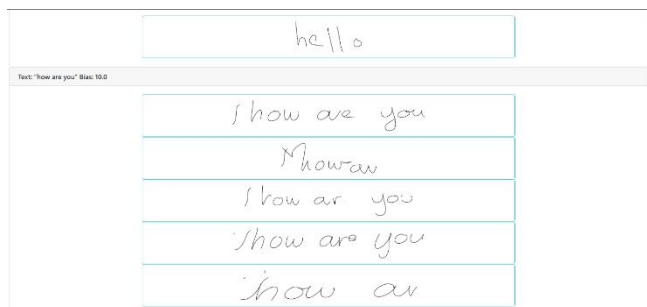 hello
Text: "how are you" Bias: 10.0
how are you
how ar
how ar you
how are you
how ar